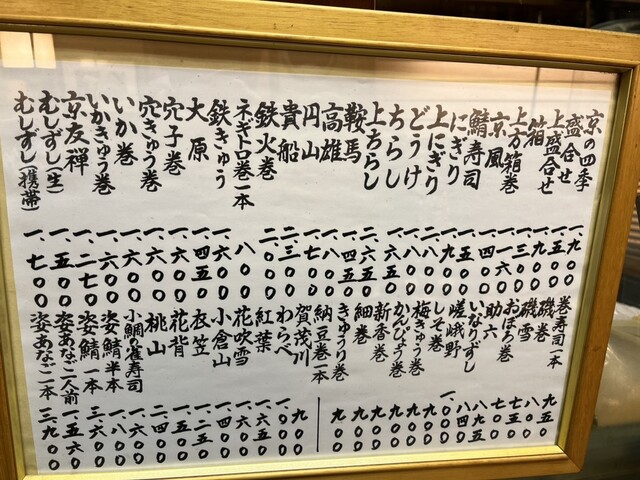 京の四季 一、九〇〇
盛合せ 一、五〇〇
上盛合せ 一、九〇〇
箱 九〇〇
上方箱巻 一、一六〇
京風 一、四〇〇
鯖寿司
にぎり 一、九〇〇
上にぎり 二、八〇〇
どうけ 一、八〇〇
ちらし 一、六五〇
上ちらし 二、六五〇
鞍馬 一、四五〇
高雄 一、八〇〇
円山 一、七〇〇
貴船 二、三〇〇
鉄火巻 二、〇〇〇
ネギトロ巻一本 八〇〇
鉄きゅう 一、六〇〇
大原 一、四五〇
穴子巻 一、六〇〇
穴きゅう巻 一、六〇〇
いか巻 一、六〇〇
いかきゅう巻 一、六〇〇
京友禅 一、二七〇
むしずし(生) 一、五〇〇
むしずし(携帯) 一、七〇〇
巻寿司一本 九五〇
磯巻 八〇〇
磯雪 七五〇
おぼろ巻 七〇〇
助六 八五〇
いなりずし 八四〇
嵯峨野 一、〇〇〇
しそ巻 九〇〇
梅きゅう巻 九〇〇
かんぴょう巻 九〇〇
新香巻 九〇〇
細巻 九〇〇
きゅうり巻 九〇〇
納豆巻一本 九〇〇
賀茂川 九〇〇
わらべ 一、〇〇〇
紅葉 一、六五〇
花吹雪 一、六〇〇
小倉山 一、四〇〇
衣笠 一、二五〇
花背 一、五〇〇
桃山 二、四〇〇
小鯛の雀寿司 一、九〇〇
姿鯖半本 一、八〇〇
姿鯖一本 三、六〇〇
姿あなご二人前 一、五六〇
姿あなご一本 三、九〇〇